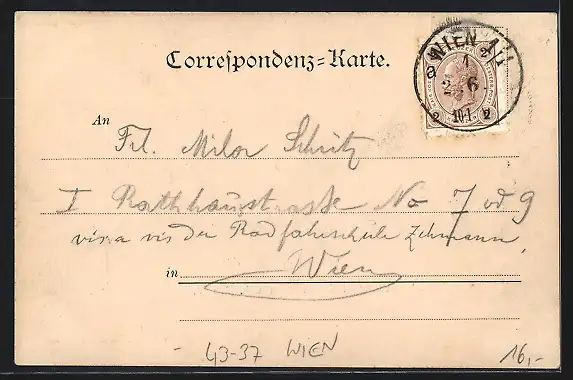 WIEN 1/1
Correspondenz=Karte.
An
Frl. Milor Schütz
I Rathhausstrasse No 7 od 9
vis a vis der Radfahrschule Zehmann
in Wien
43-37 WIEN
16,-